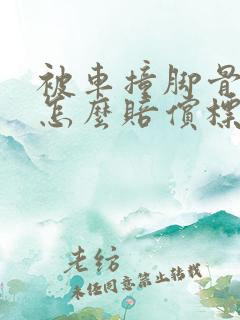 被車撞脚骨
怎麼賠償標
老纺
未经同意禁止转载